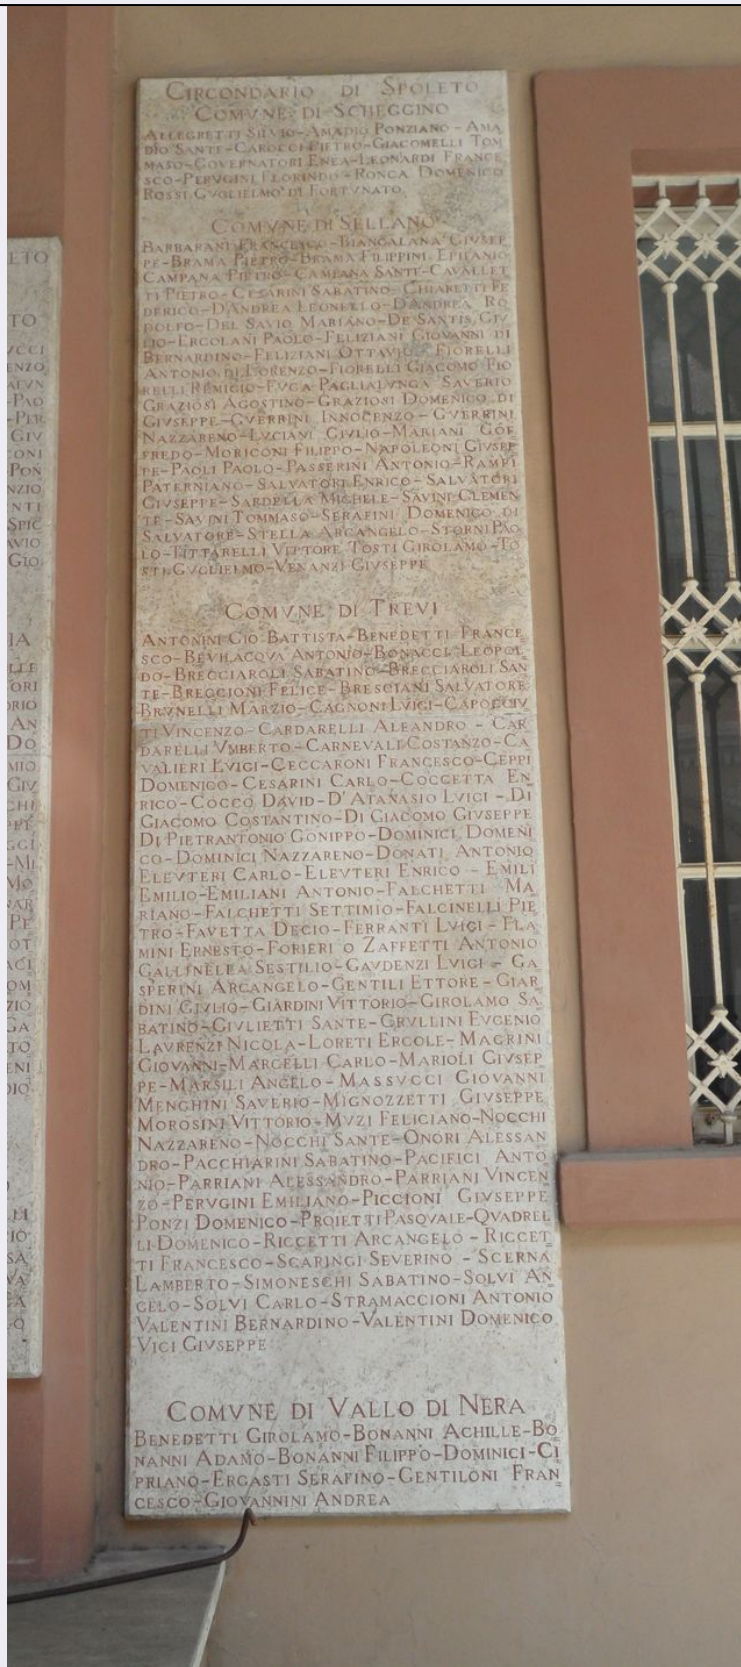 CIRCONDARIO DI SPOLETO
COMVNE DI SCHEGGINO
ALLEGRETTI SILVIO-AMADIO PONZIANO-AMA
DIO SANTE-CAROCCI PIETRO-GIACOMELLI TOM
MASO-GOVERNATORI ENEA-LEONARDI FRANCE
SCO-PERVGINI FLORINDO-RONCA DOMENICO
ROSSI GVGLIELMO DI FORTVNATO
COMVNE DI SELLANO
BARBARANI FRANCESCO-BIANCALANA GIVSEP
PE-BRAMA PIETRO-BRAMA FILIPPINI EPIFANIO
CAMPANA PIETRO-CAMPANA SANTE-CAVALLET
TI PIETRO-CESARINI SABATINO-CHIARETTI FE
DERICO-D'ANDREA LEONELLO-D'ANDREA RO
DOLFO-DEL SAVIO MARIANO-DE SANTIS GIV
LIO-ERCOLANI PAOLO-FELIZIANI GIOVANNI DI
BERNARDINO-FELIZIANI OTTAVIO-FIORELLI
ANTONIO DI LORENZO-FIORELLI GIACOMO FIO
RELLI REMIGIO-FVGA-PAGLIALVNGA SAVERIO
GRAZIOSI AGOSTINO-GRAZIOSI DOMENICO DI
GIVSEPPE-GVERRINI INNOCENZO-GVERRINI
NAZZARENO-LVCIANI GIVLIO-MARIANI GOF
FREDO-MORICONI FILIPPO-NAPOLEONI GIVSEP
PE-PAOLI PAOLO-PASSERINI ANTONIO-RAMPI
PATERNIANO-SALVATORI ENRICO-SALVATORI
GIVSEPPE-SARDELLA MICHELE-SAVINI CLEMEN
TE-SAVINI TOMMASO-SERAFINI DOMENICO DI
SALVATORE-STELLA ARCANGELO-STORNI PAO
LO-TITTARELLI VITTORE TOSTI GIROLAMO-TO
STI GVGLIELMO-VENANZI GIVSEPPE
COMVNE DI TREVI
ANTONINI GIO BATTISTA-BENEDETTI FRANCE
SCO-BEVILACQVA ANTONIO-BONACCI LEOPOL
DO-BRECCIAROLI SABATINO-BRECCIAROLI SAN
TE-BRECCIONI FELICE-BRESCIANI SALVATORE
BRVNELLI MARZIO-CAGNONI LVIGI-CAPOCCIV
TI VINCENZO-CARDARELLI ALEANDRO-CAR
DARELLI VMBERTO-CARNEVALI COSTANZO-CA
VALIERI LVIGI-CECCARONI FRANCESCO-CEPPI
DOMENICO-CESARINI CARLO-COCCETTA EN
RICO-COCCO DAVID-D'ATANASIO LVIGI-DI
GIACOMO COSTANTINO-DI GIACOMO GIVSEPPE
DI PIETRANTONIO GONIPPO-DOMINICI DOMENI
CO-DOMINICI NAZZARENO-DONATI ANTONIO
ELEVTERI CARLO-ELEVTERI ENRICO-EMILI
EMILIO-EMILIANI ANTONIO-FALCHETTI MA
RIANO-FALCHETTI SETTIMIO-FALCINELLI PIE
TRO-FAVETTA DECIO-FERRANTI LVIGI-FLA
MINI ERNESTO-FORIERI O ZAFFETTI ANTONIO
GALLINELLA SESTILIO-GAVDENZI LVIGI-GA
SPERINI ARCANGELO-GENTILI ETTORE-GIAR
DINI GIVLIO-GIARDINI VITTORIO-GIROLAMO SA
BATINO-GIVLIETTI SANTE-GRVLLINI EVGENIO
LAVRENZI NICOLA-LORETI ERCOLE-MAGRINI
GIOVANNI-MARCELLI CARLO-MARIOLI GIVSEP
PE-MARSILI ANGELO-MASSVCCI GIOVANNI
MENGHINI SAVERIO-MIGNOZZETTI GIVSEPPE
MOROSINI VITTORIO-MVZI FELICIANO-NOCCHI
NAZZARENO-NOCCHI SANTE-ONORI ALESSAN
DRO-PACCHIARINI SABATINO-PACIFICI ANTO
NIO-PARRIANI ALESSANDRO-PARRIANI VINCEN
ZO-PERVGINI EMILIANO-PICCIONI GIVSEPPE
PONZI DOMENICO-PROIETTI PASQVALE-QVADREL
LI DOMENICO-RICCETTI ARCANGELO-RICCET
TI FRANCESCO-SCARINGI SEVERINO-SCERNA
LAMBERTO-SIMONESCHI SABATINO-SOLVI AN
GELO-SOLVI CARLO-STRAMACCIONI ANTONIO
VALENTINI BERNARDINO-VALENTINI DOMENICO
VICI GIVSEPPE
COMVNE DI VALLO DI NERA
BENEDETTI GIROLAMO-BONANNI ACHILLE-BO
NANNI ADAMO-BONANNI FILIPPO-DOMINICI-CI
PRIANO-ERGASTI SERAFINO-GENTILONI FRAN
CESCO-GIOVANNINI ANDREA